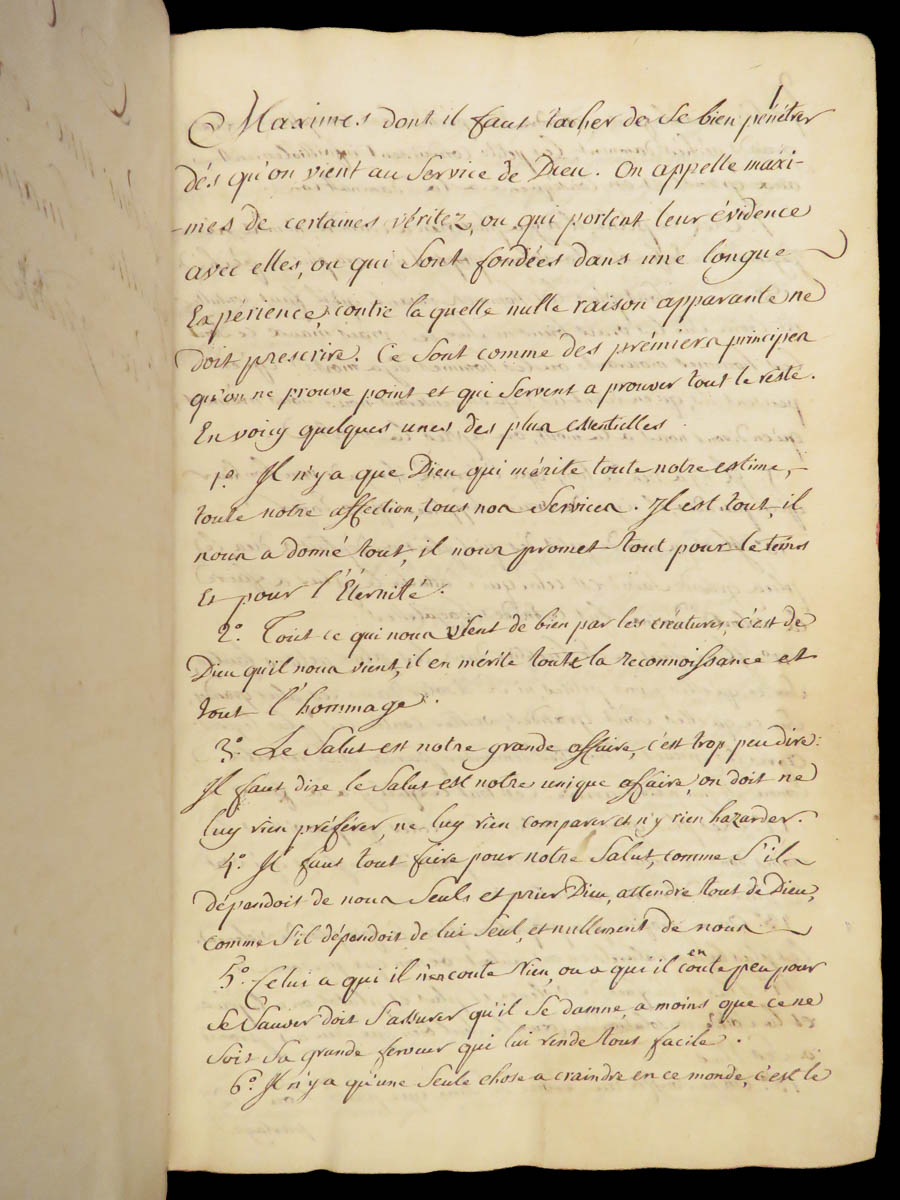 1
Maximes dont il faut tacher de se bien pénétrer
dés qu'on vient au Service de Dieu. On appelle maxi-
-mes de certaines véritez, ou qui portent leur évidence
avec elles, ou qui sont fondées dans une longue
Expérience, contre la quelle nulle raison apparante ne
doit prescrire. Ce sont comme des prémiers principes
qu'on ne prouve point et qui servent a prouver tout le reste.
En voicy quelques unes des plus essentielles
1.º Il n'y a que Dieu qui mérite toute notre estime,
toute notre affection, tous nos Services. Il est tout, il
nous a donné tout, il nous promet tout pour le tems
et pour l'Éternité.
2.º Tout ce qui nous vient de bien par les créatures, c'est de
Dieu qu'il nous vient, il en mérite toute la reconnoissance et
tout l'hommage.
3.º Le Salut est notre grande affaire, c'est trop peu dire:
Il faut dire le Salut est notre unique affaire, on doit ne
luy rien préférer, ne luy rien comparer et n'y rien hazarder.
4.º Il faut tout faire pour notre Salut, comme s'il
dépendoit de nous Seuls et prier Dieu, attendre tout de Dieu,
comme s'il dépendoit de lui Seul, et nullement de nous
5.º Celui a qui il n'en coute rien, ou a qui il en coute peu pour
se Sauver doit s'assurer qu'il se damne, a moins que ce ne
soit sa grande ferveur qui lui rende tout facile.
6.º Il n'y a qu'une seule chose a craindre en ce monde, c'est le